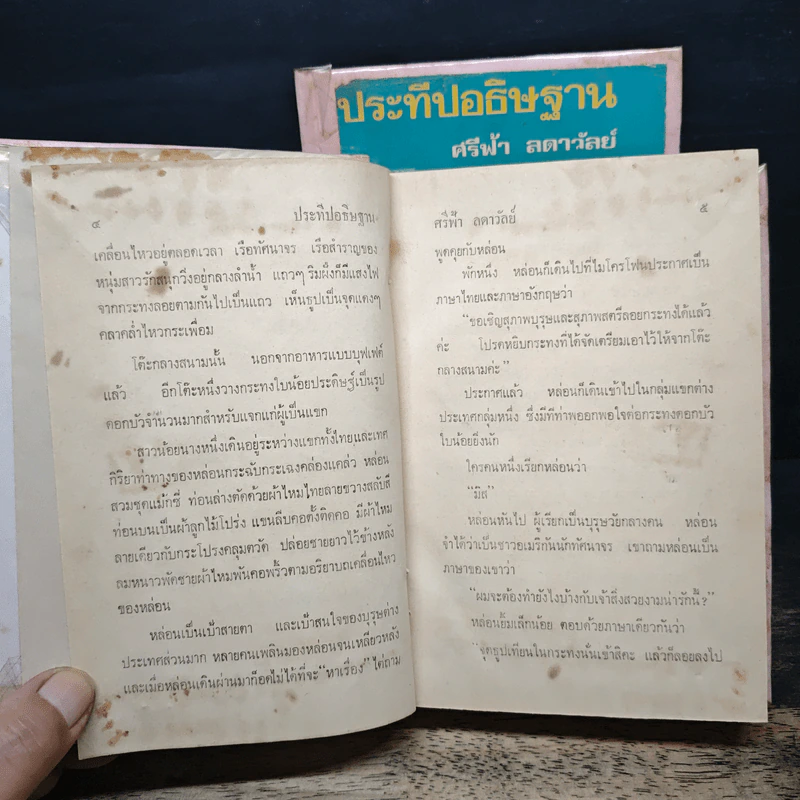 ประทีปอธิษฐาน
ศรีฟ้า ลดาวัลย์
๔
ประทีปอธิษฐาน
เคลื่อนไหวอยู่ตลอดเวลา เรือทัศนาจร เรือสำราญของ
หนุ่มสาวรักสนุกวิ่งอยู่กลางลำน้ำ แถวๆ ริมฝั่งก็มีแสงไฟ
จากกระทงลอยตามกันไปเป็นแถว เห็นธูปเป็นจุดแดงๆ
คลาคล่ำไหวกระเพื่อม
โต๊ะกลางสนามนั้น นอกจากอาหารแบบบุฟเฟต์
แล้ว อีกโต๊ะหนึ่งวางกระทงใบน้อยประดิษฐ์เป็นรูป
ดอกบัวจำนวนมากสำหรับแจกแก่ผู้เป็นแขก
สาวน้อยนางหนึ่งเดินอยู่ระหว่างแขกทั้งไทยและเทศ
กิริยาท่าทางของหล่อนกระฉับกระเฉงคล่องแคล่ว หล่อน
สวมชุดแม็กซี่ ท่อนล่างตัดด้วยผ้าไหมไทยลายขวางสลับสี
ท่อนบนเป็นผ้าลูกไม้โปร่ง แขนลีบคอตั้งติดคอ มีผ้าไหม
ลายเดียวกับกระโปรงคลุมตวัด ปล่อยชายยาวไว้ข้างหลัง
ลมหนาวพัดชายผ้าไหมพันคอพริ้วตามอริยาบถเคลื่อนไหว
ของหล่อน
หล่อนเป็นเป้าสายตา และเป้าสนใจของบุรุษต่าง
ประเทศส่วนมาก หลายคนเพลินมองหล่อนจนเหลียวหลัง
และเมื่อหล่อนเดินผ่านมาก็อดไม่ได้ที่จะ “หาเรื่อง” ไต่ถาม
ศรีฟ้า ลดาวัลย์
๕
พูดคุยกับหล่อน
พักหนึ่ง หล่อนก็เดินไปที่ไมโครโฟนประกาศเป็น
ภาษาไทยและภาษาอังกฤษว่า
“ขอเชิญสุภาพบุรุษและสุภาพสตรีลอยกระทงได้แล้ว
ค่ะ โปรดหยิบกระทงที่ได้จัดเตรียมเอาไว้ให้จากโต๊ะ
กลางสนามค่ะ”
ประกาศแล้ว หล่อนก็เดินเข้าไปในกลุ่มแขกต่าง
ประเทศกลุ่มหนึ่ง ซึ่งมีทีท่าพออกพอใจต่อกระทงดอกบัว
ใบน้อยยิ่งนัก
ใครคนหนึ่งเรียกหล่อนว่า
“มิส”
หล่อนหันไป ผู้เรียกเป็นบุรุษวัยกลางคน หล่อน
จำได้ว่าเป็นชาวอเมริกันนักทัศนาจร เขาถามหล่อนเป็น
ภาษาของเขาว่า
“ผมจะต้องทำยังไงบ้างกับเจ้าสิ่งสวยงามน่ารักนี้?”
หล่อนยิ้มเล็กน้อย ตอบด้วยภาษาเดียวกันว่า
“จุดธูปเทียนในกระทงนั่นเข้าสิคะ แล้วก็ลอยลงไป